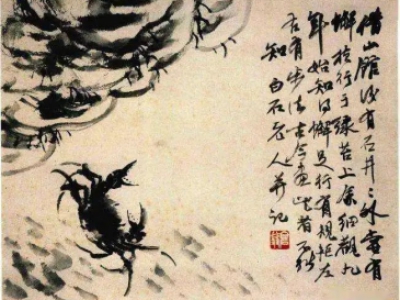 借山館後有石井〻外常有
蟹橫行于綠苔上余細觀九
年始知得蟹足行有規矩左
右有步法古今畫此者不能
知 白石老人并記